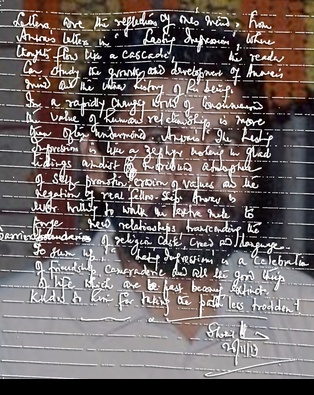 Letters are the reflection of one's mind. From
letters in 'Lasting Impressions', where
thoughts flow like a cascade the reader
can study the growth and development of
mind and the inner history of his being.
In a rapidly changing world of Consumerism
the value of human relationship is more
often undermined. 'Lasting
Impression' is like a zephyr bringing in glad
tidings amidst atmosphere
of self-promotion, erosion of values and the
negation of real fellowship. is
ever willing to walk an extra mile to
forge new relationships transcending the
barriers of religion, caste, creed and language.
To sum up, 'Lasting Impressions' is a celebration
of friendship, camaraderie and all the good things
of life which are fast becoming extinct.
Kudos to him for taking the path less trodden!
26/11/19